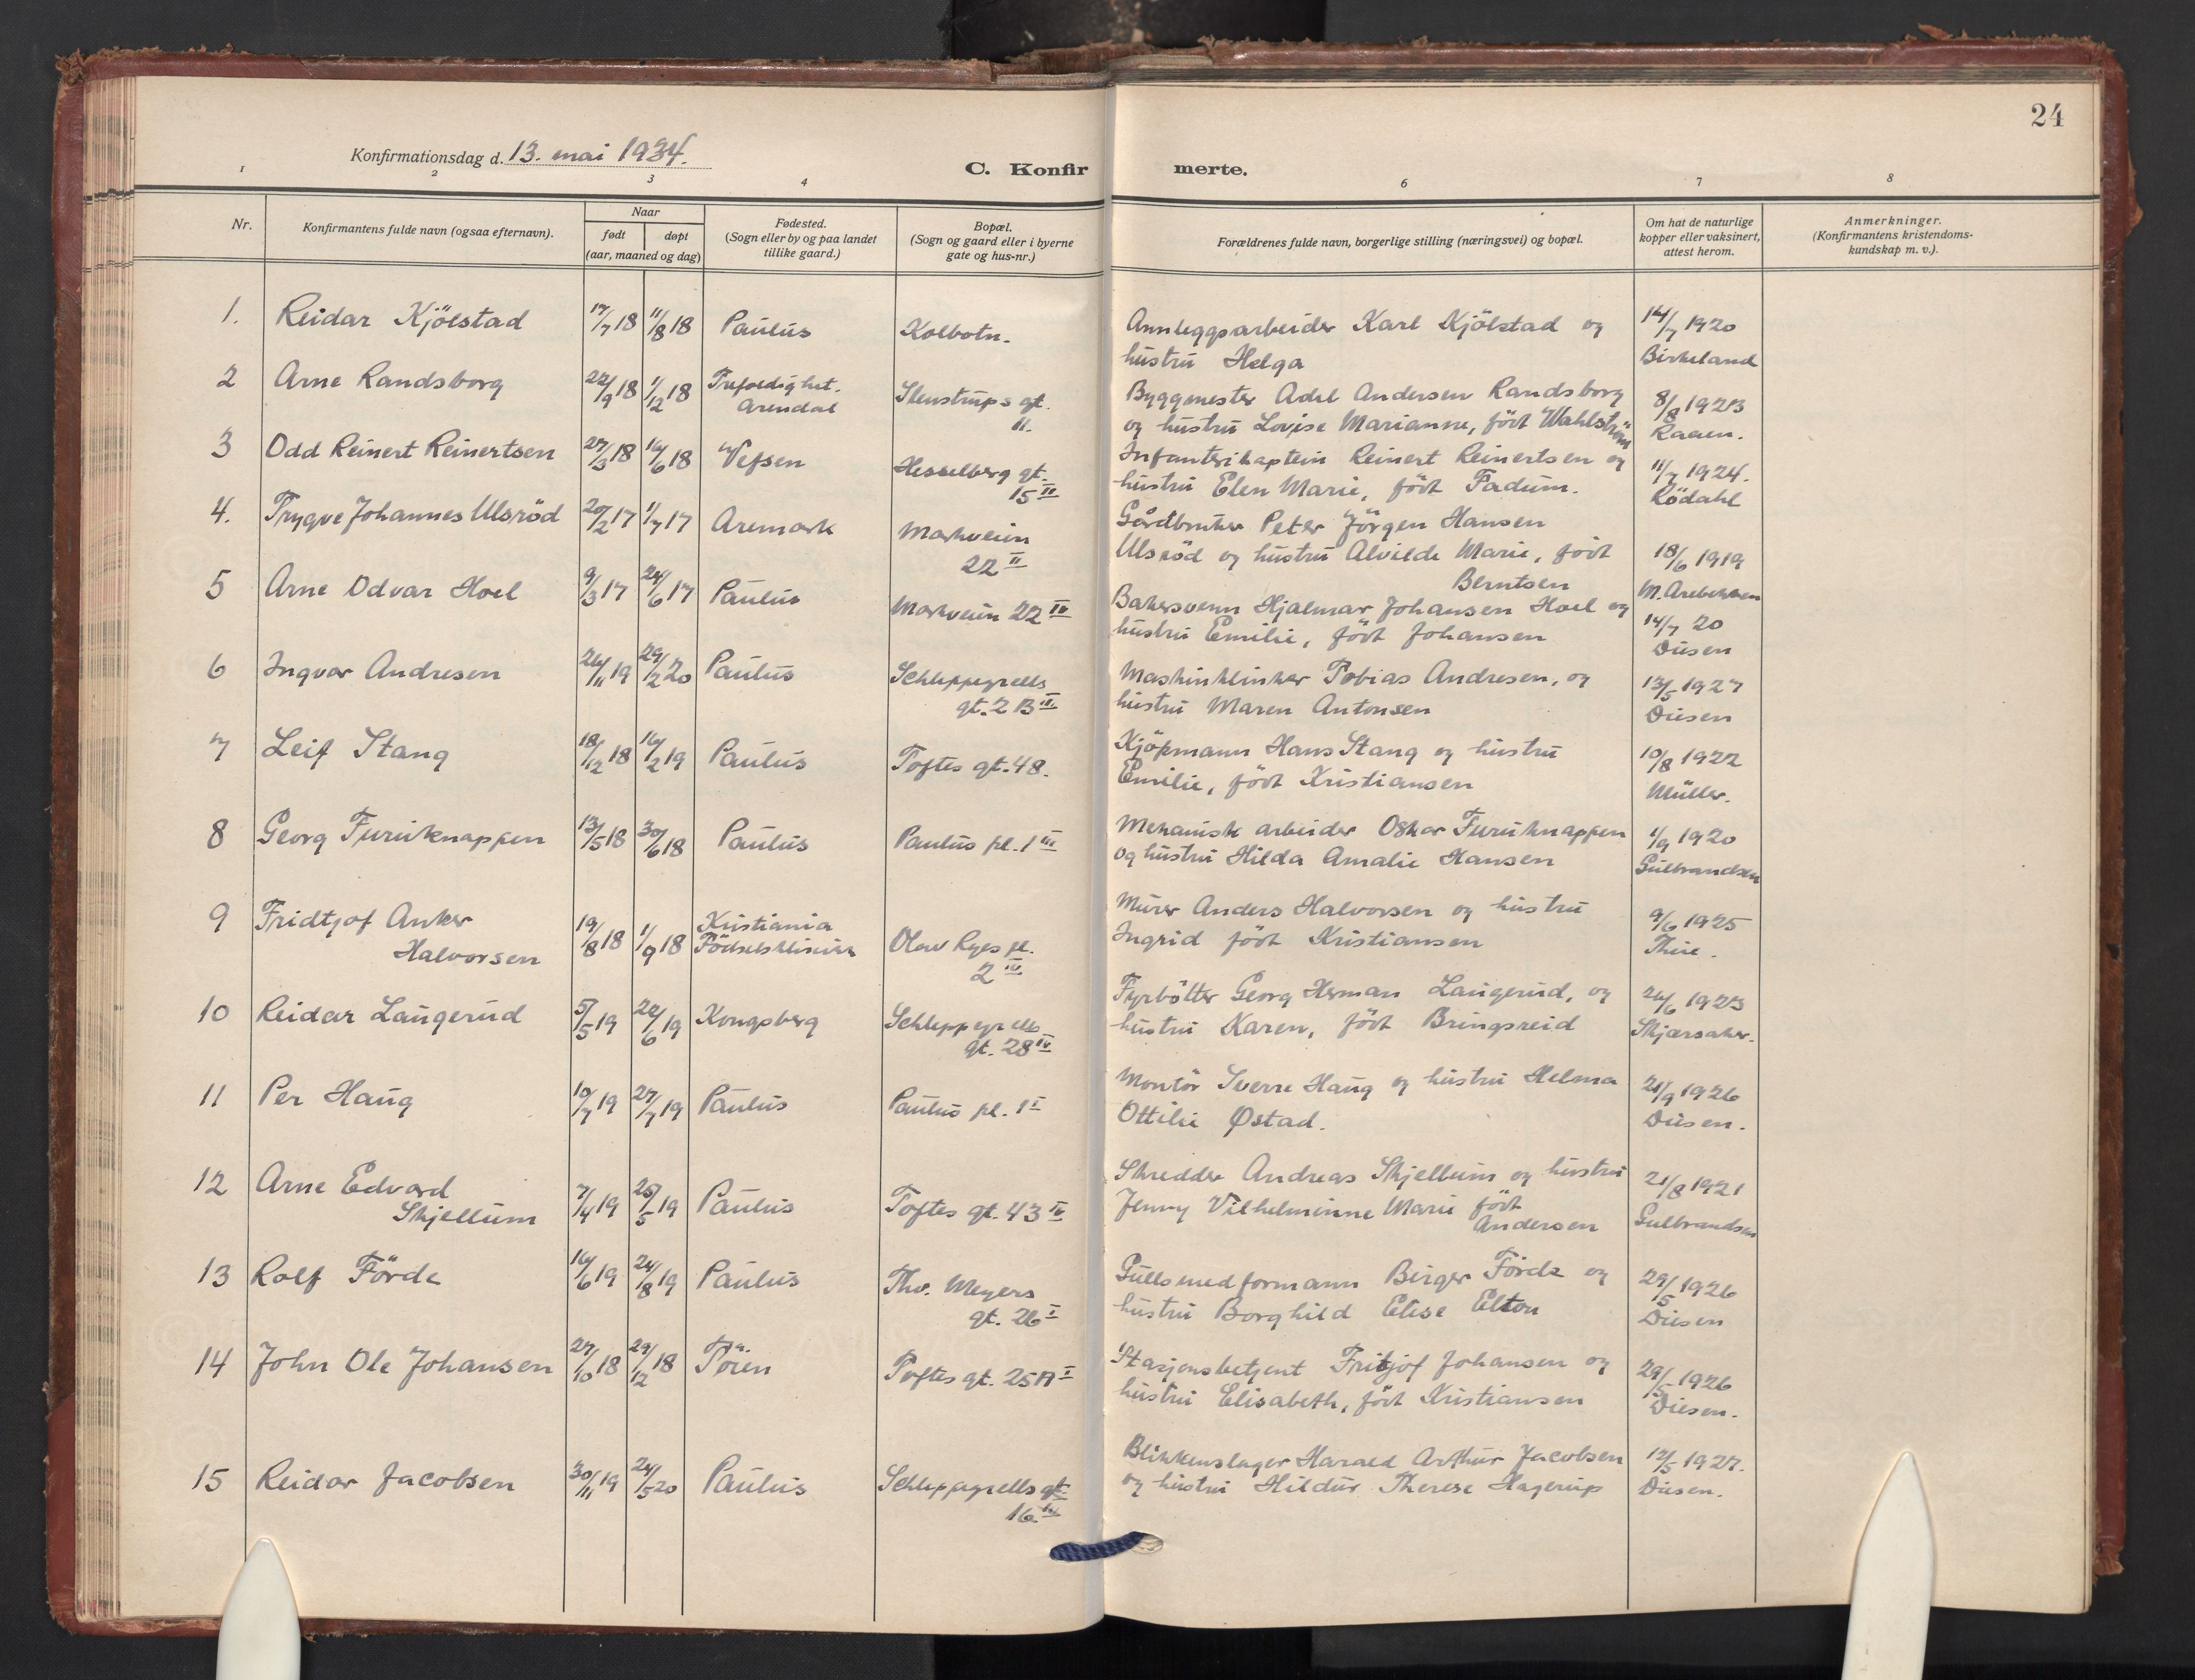 24
Konfirmationsdag d. 13. mai 1934.
C. Konfirmerte.
1 2 3 4 6 7 8
Nr.
Konfirmantens fulde navn (ogsaa efternavn).
Naar
født døpt
(aar, maaned og dag)
Fødested.
(Sogn eller by og paa landet
tillike gaard.)
Bopæl.
(Sogn og gaard eller i byerne
gate og hus-nr.)
Forældrenes fulde navn, borgerlige stilling (næringsvei) og bopæl.
Om hat de naturlige
kopper eller vaksinert,
attest herom.
Anmerkninger.
(Konfirmantens kristendoms-
kundskap m. v.).
1. Reidar Kjölstad 17/7 18 11/8 18 Paulus Kolbotn. Annleggsarbeider Karl Kjölstad og 14/7 1920
hustru Helga Birkeland
2 Arne Randsborg 22/9 18 1/12 18 Trefoldighet. Stenstrups gt. Byggmester Adel Andersen Randsborg 8/8 1923
Arendal 11. og hustru Lovise Marianne, född Wahlström Raaen.
3 Odd Reinert Reinertsen 27/3 18 16/6 18 Vefsen Hesselberg gt. Infanterikaptein Reinert Reinertsen og 11/7 1924.
15 II hustru Elen Marie, född Fadum. Rödahl
4. Trygve Johannes Ulsröd 20/2 17 1/7 17 Aremark Markveien Gårdbruker Peter Jörgen Hansen
22 II Ulsröd og hustru Alvilde Marie, född 18/6 1919
Berntsen
5 Arne Odvar Hoel 9/3 17 24/6 17 Paulus Markveien 22 IV Bakersvenn Hjalmar Johansen Hoel og 14/7 20
hustru Emilie, född Johansen Düsen
6 Ingvar Andresen 26/11 19 29/2 20 Paulus Schleppegrells Maskinklinker Tobias Andresen, og 13/5 1927
gt. 2 B III hustru Maren Antonsen Düsen
7 Leif Stang 18/12 18 16/2 19 Paulus Toftes gt. 48. Kjöpmann Hans Stang og hustru 10/8 1922
Emilie, född Kristiansen Müller.
8 Georg Furuknappen 13/5 18 30/6 18 Paulus Paulus pl. 1 III Mekanisk arbeider Oskar Furuknappen 1/9 1920
og hustru Hilda Amalie Hansen Gulbrandsen
9 Fridtjof Anker 19/8 18 1/9 18 Kristiania Olav Ryes pl. Murer Anders Halvorsen og hustru 9/6 1925
Halvorsen Födselsklinikk 2 IV Ingrid född Kristiansen Thue.
10 Reidar Laugerud 5/5 19 22/6 19 Kongsberg Schleppegrells Fyrbötter Georg Herman Laugerud, og 26/6 1923
gt. 28 IV hustru Karen, född Bringsreid Skjærsaker.
11 Per Haug 10/7 19 27/7 19 Paulus Paulus pl. 1 I Montör Sverre Haug og hustru Helma 21/9 1926
Ottilie Østad. Düsen.
12 Arne Edvard 7/4 19 25/5 19 Paulus Toftes gt. 43 IV Skredder Andreas Skjellum og hustru 21/8 1921
Skjellum Jenny Vilhelminne Marie född Gulbrandsen
Andersen
13 Rolf Förde 16/6 19 24/8 19 Paulus Thv. Meyers Gullsmedformann Birger Förde og 29/5 1926
gt. 26 I hustru Borghild Elise Elton Düsen
14 John Ole Johansen 27/10 18 29/12 18 Toftes gt. 25 A I Stasjonsbetjent Fritjof Johansen og 29/5 1926
hustru Elisabeth, född Kristiansen Düsen.
15 Reidar Jacobsen 30/11 19 24/5 20 Paulus Schleppegrells gt. Blikkenslager Harald Arthur Jacobsen 12/5 1927.
16 og hustru Hildur Therese Hagerup Düsen.